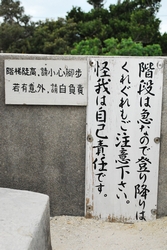 階段は急なので登り降りは
くれぐれもご注意下さい。
怪我は自己責任です。
階梯陡高，請小心腳步
若有意外，請自負責